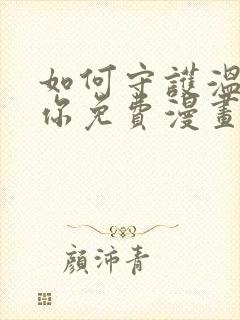 如何守護溫
你免費漫畫
顏沛青